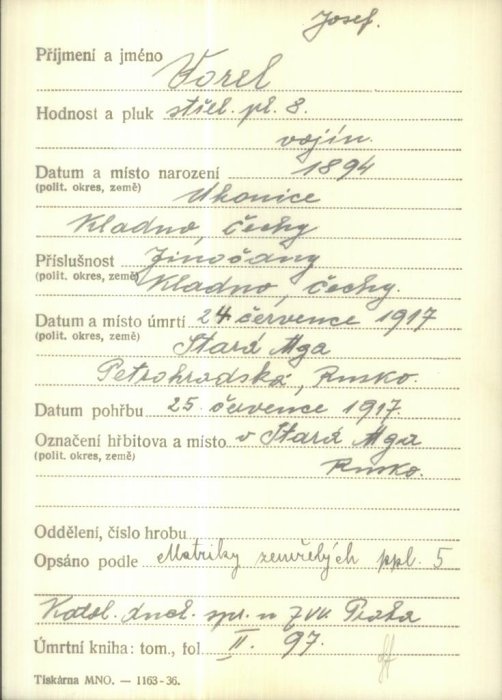 Josef.
Příjmení a jméno Vorel
Hodnost a pluk střel. pl. 8.
vojín.
Datum a místo narození 1894
(polit. okres, země) Uhonice
Kladno, Čechy
Příslušnost Jinočany
(polit. okres, země) Kladno, Čechy.
Datum a místo úmrtí 24 července 1917
(polit. okres, země) Stará Mga
Petrohradská, Rusko.
Datum pohřbu 25. července 1917.
Označení hřbitova a místo v Stará Mga
(polit. okres, země) Rusko.
Oddělení, číslo hrobu
Opsáno podle Matriky zemřelých ppl. 5
Katol. duch. spr. u ZVV Praha
Úmrtní kniha: tom., fol II. 97.
Tiskárna MNO. — 1163-36.